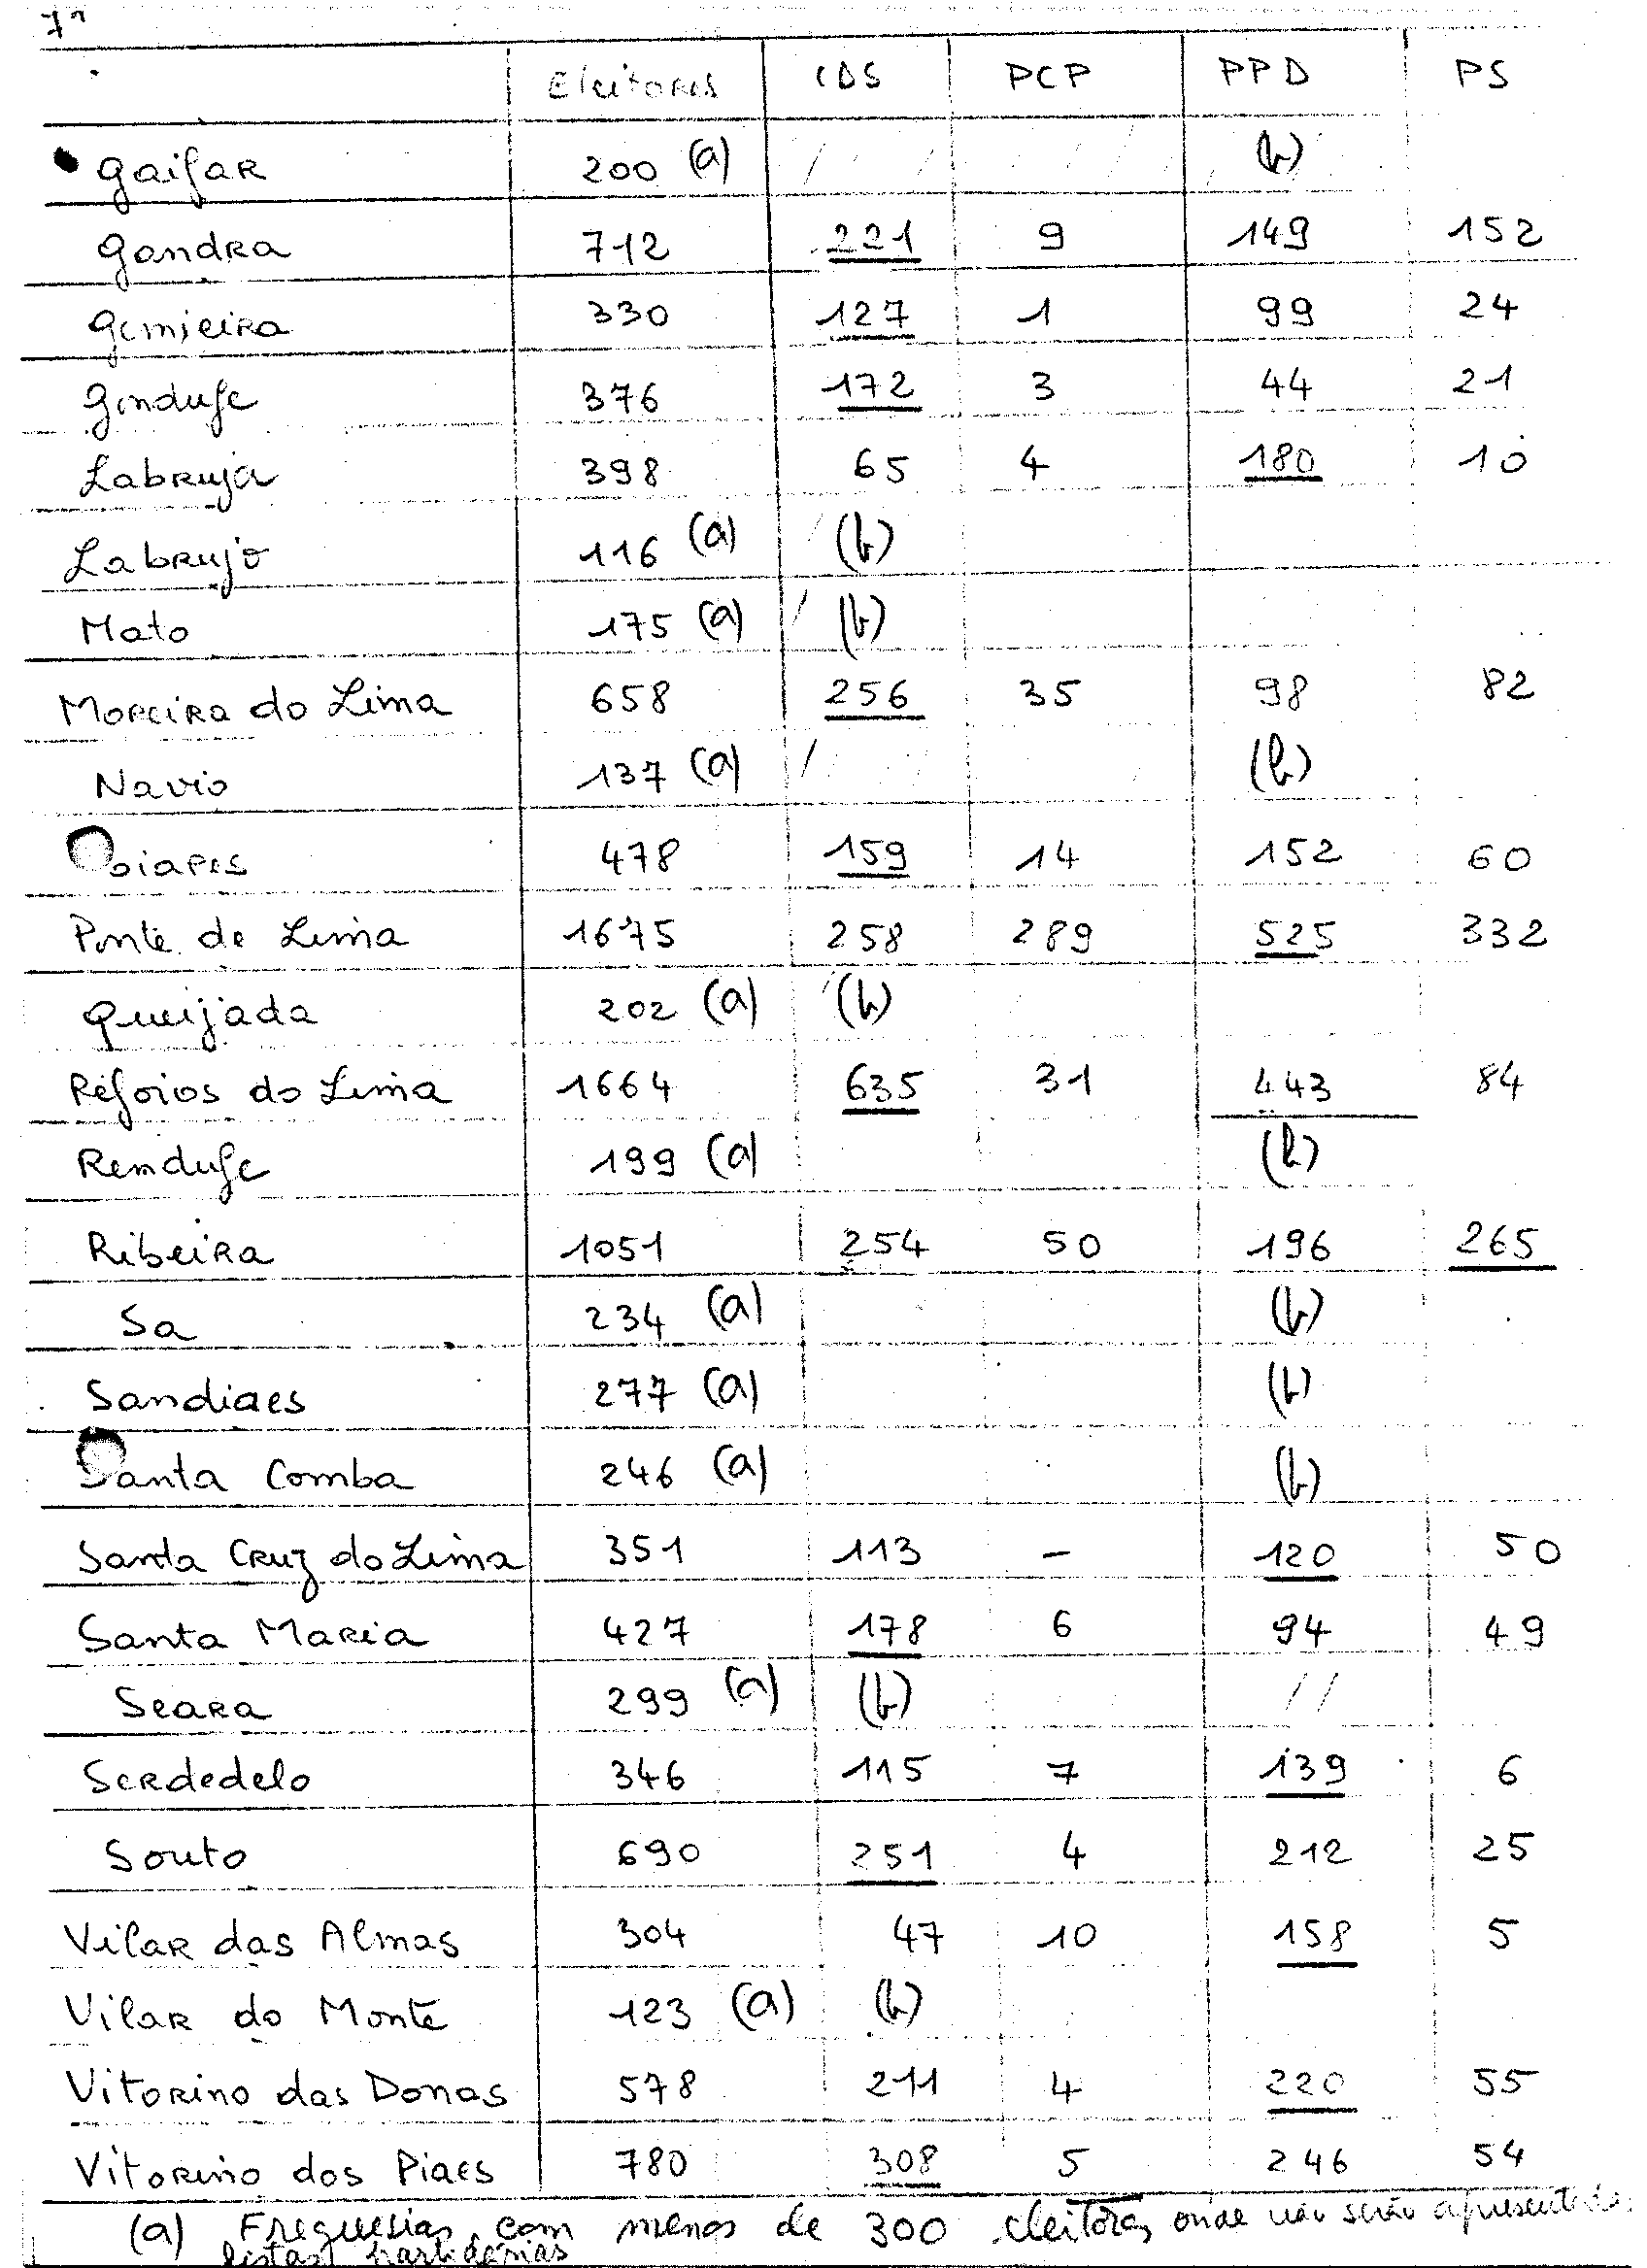 7ª
Eleitores CDS PCP PPD PS
Gaifar 200 (a) (b)
Gandra 712 221 9 149 152
Gemieira 330 127 1 99 24
Gondufe 376 172 3 44 21
Labruja 398 65 4 180 10
Labrujo 116 (a) (b)
Mato 175 (a) (b)
Moreira do Lima 658 256 35 98 82
Navio 137 (a) (b)
oiares 478 159 14 152 60
Ponte de Lima 1675 258 289 525 332
Queijada 202 (a) (b)
Refoios do Lima 1664 635 31 443 84
Rendufe 199 (a) (b)
Ribeira 1051 254 50 196 265
Sa 234 (a) (b)
Sandiaes 277 (a) (b)
Santa Comba 246 (a) (b)
Santa Cruz do Lima 351 113 - 120 50
Santa Maria 427 178 6 94 49
Seara 299 (a) (b)
Serdedelo 346 115 7 139 6
Souto 690 251 4 212 25
Vilar das Almas 304 47 10 158 5
Vilar do Monte 123 (a) (b)
Vitorino das Donas 578 211 4 220 55
Vitorino dos Piaes 780 308 5 246 54
(a) Freguesias com menos de 300 eleitores onde não serão apresentadas
listas partidárias